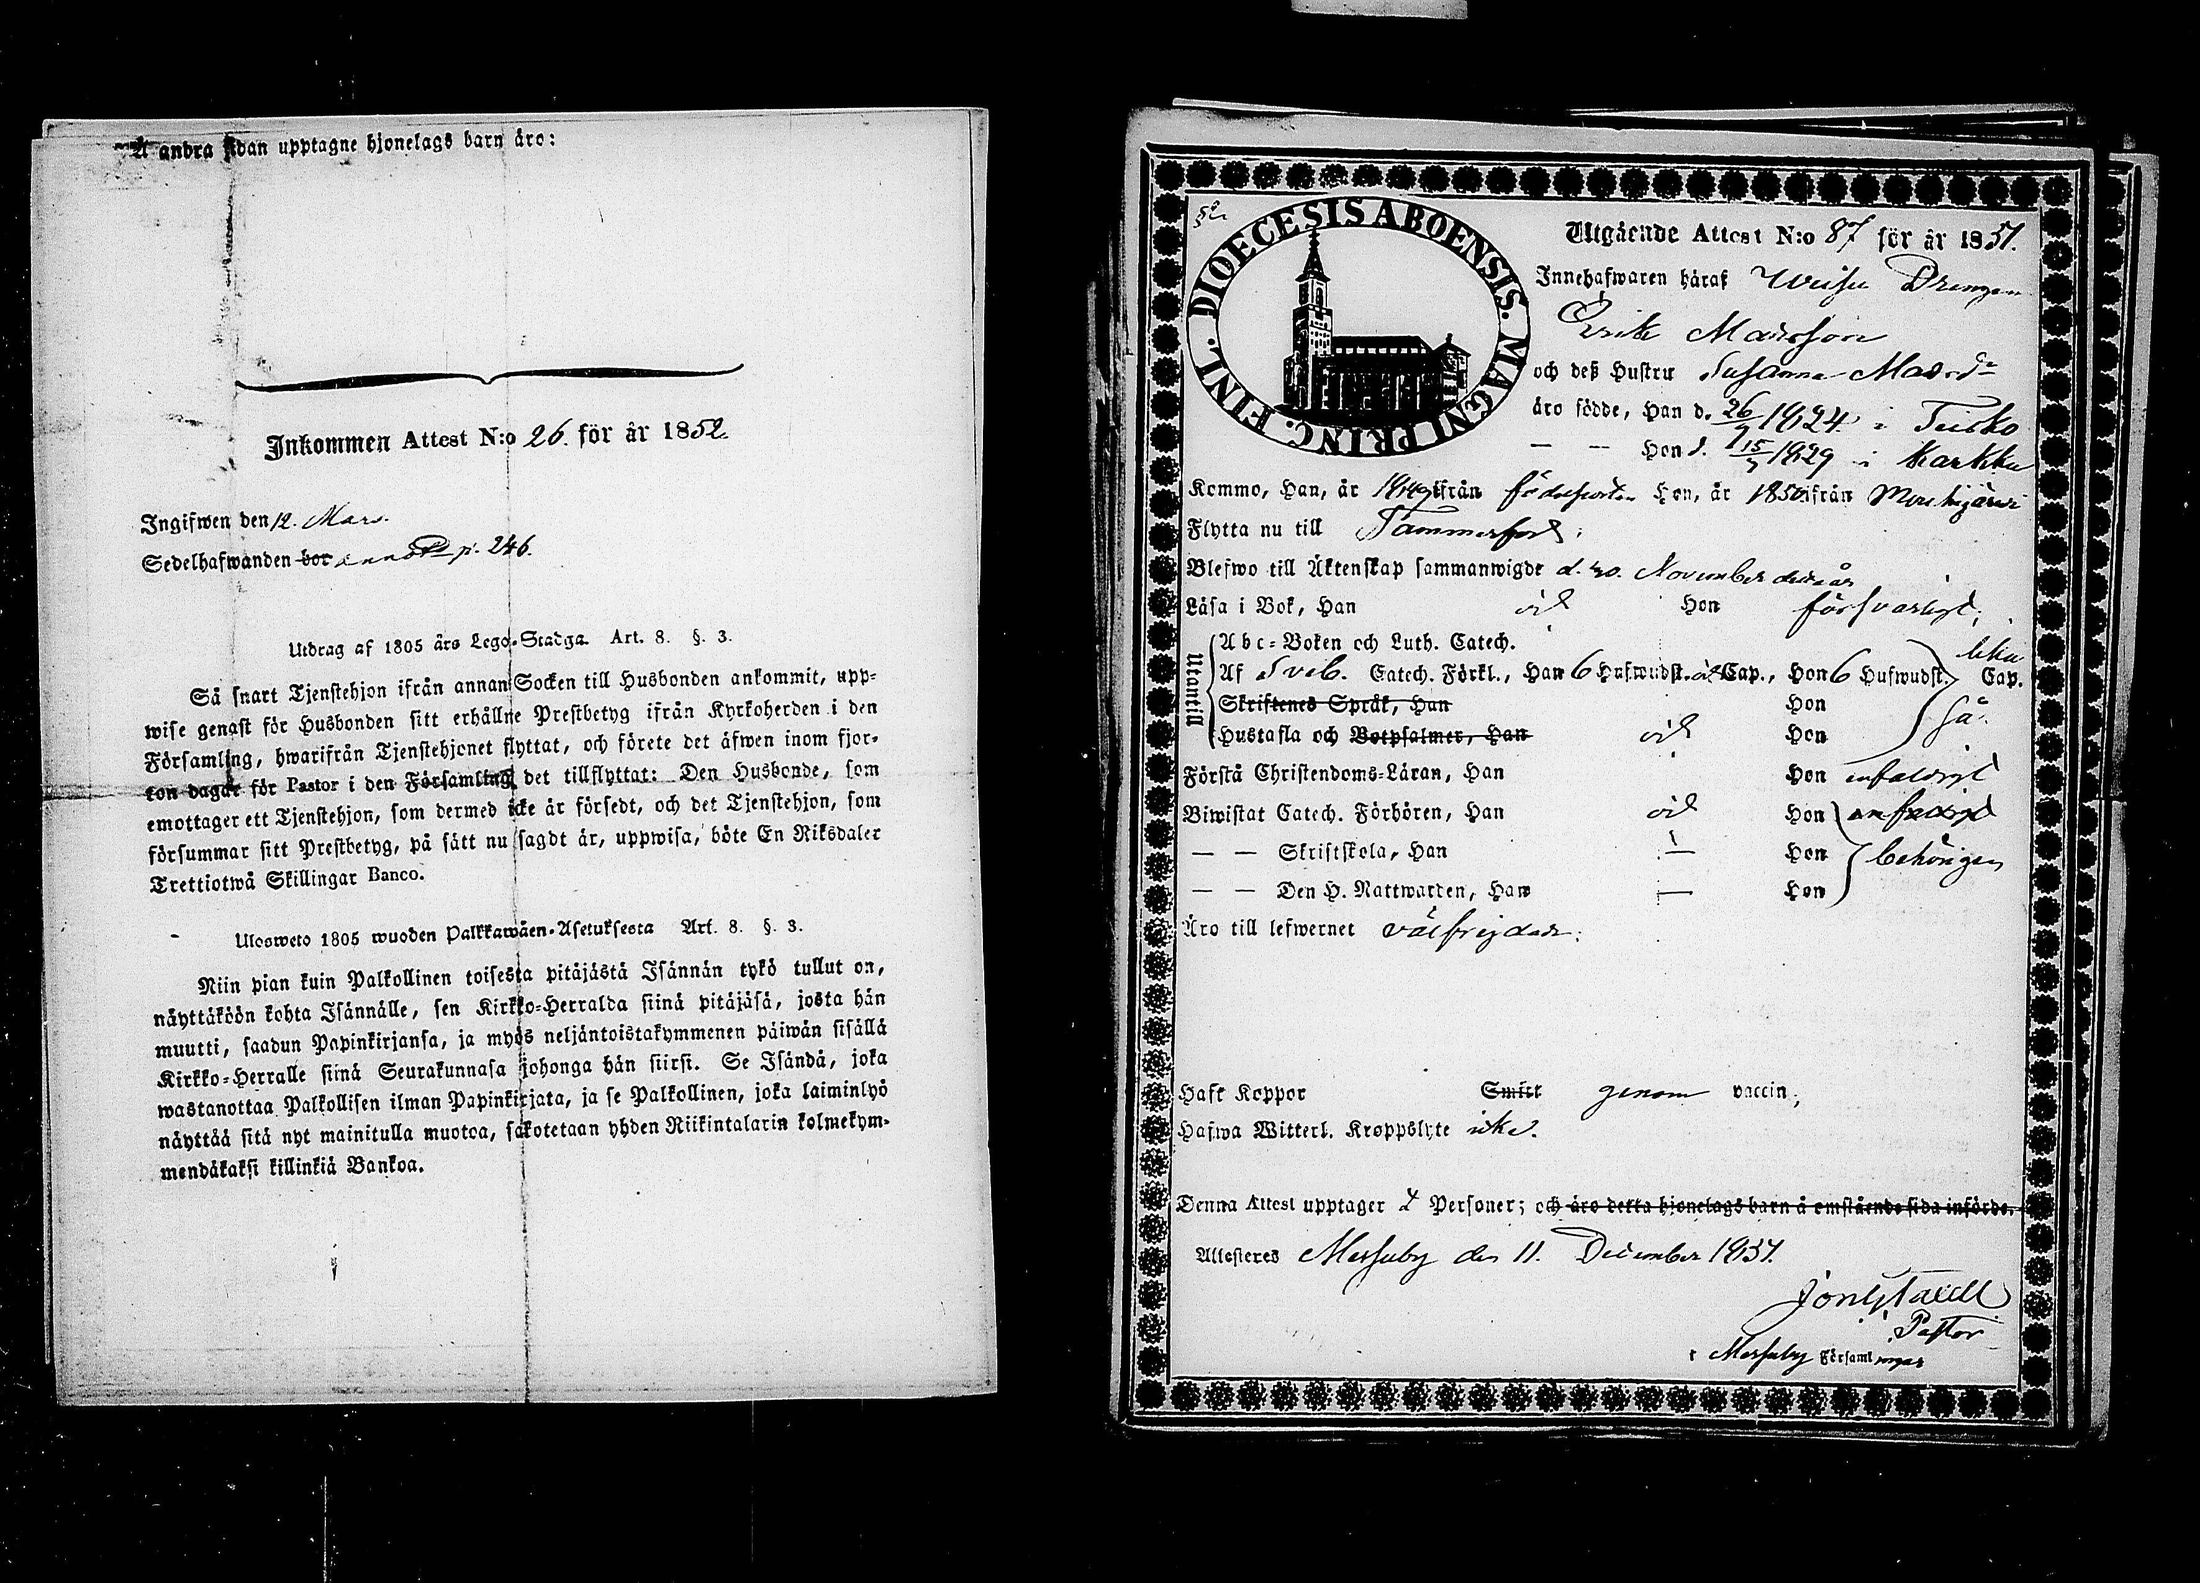 Å andra sidan upptagne hjonelags barn äro:
Inkommen Attest N:o 26. för år 1852.
Ingifwen den 12. Mars.
Sedelhafwanden bor p. 246.
Utdrag af 1805 års Lego-Stadga. Art. 8. §. 3.
Så snart Tjenstehjon ifrån annan Socken till Husbonden ankommit, upp-
wise genast för Husbonden sitt erhållne Prestbetyg ifrån Kyrkoherden i den
Församling, hwarifrån Tjenstehjonet flyttat, och förete det äfwen inom fjor-
ton dagar för Pastor i den Församling det tillflyttat: Den Husbonde, som
emottager ett Tjenstehjon, som dermed icke är försedt, och det Tjenstehjon, som
försummar sitt Prestbetyg, på sätt nu sagdt är, uppwisa, böte En Riksdaler
Trettiotwå Skillingar Banco.
Ulosweto 1805 wuoden Palkkawäen-Asetuksesta Art. 8. §. 3.
Niin pian kuin Palkollinen toisesta pitäjästä Isännän tykö tullut on,
näyttäköön kohta Isännälle, sen Kirkko-Herralda siinä pitäjäsä, josta hän
muutti, saadun Papinkirjansa, ja myös neljäntoistakymmenen päiwän sisällä
Kirkko-Herralle siinä Seurakunnasa johonga hän siirsi. Se Isändä, joka
wastanottaa Palkollisen ilman Papinkirjata, ja se Palkollinen, joka laiminlyö
näyttää sitä nyt mainitulla muotoa, sakotetaan yhden Riikintalarin kolmekym-
mendäkaksi killinkiä Bankoa.
52.
DIOECESIS ABOENSIS. MAGNI PRINC. FINL.
Utgående Attest N:o 87 för år 1851.
Innehafwaren häraf Drengen
Erik Matsson
och deß Hustru Susanna Matsdr
äro födde, Han d. 26/9 1824 i Teisko
— — Hon d. 15/7 1829 i Karkku
Kommo, Han, år 1849 ifrån födelseorten Hon, år 1850 ifrån Mouhijärvi
Flytta nu till Tammerfors;
Blefwo till Äktenskap sammanwigde d. 30. November detta år
Läsa i Bok, Han och Hon försvarligt;
Utantill
Abc-Boken och Luth. Catech.
Af Sveb. Catech. Förkl., Han 6 Hufwudst. Cap., Hon 6 Hufwudst. Cap. lika
Skriftenes Språk, Han Hon så.
Hustafla och Botpsalmer, Han och Hon
Förstå Christendoms-Läran, Han Hon enfaldigt
Biwistat Catech. Förhören, Han och Hon enfaldigt
— — Skriftskola, Han — Hon behörigen
— — Den H. Nattwarden, Han — Hon
Äro till lefwernet välfrejdade;
Haft Koppor Smitt genom vaccin;
Hafwa Witterl. Kroppslyte icke.
Denna Attest upptager 2 Personer; och äro detta hjonelags barn å omstående sida införde.
Attesteres Messuby den 11. December 1851.
Pastor
i Messuby Församlingar